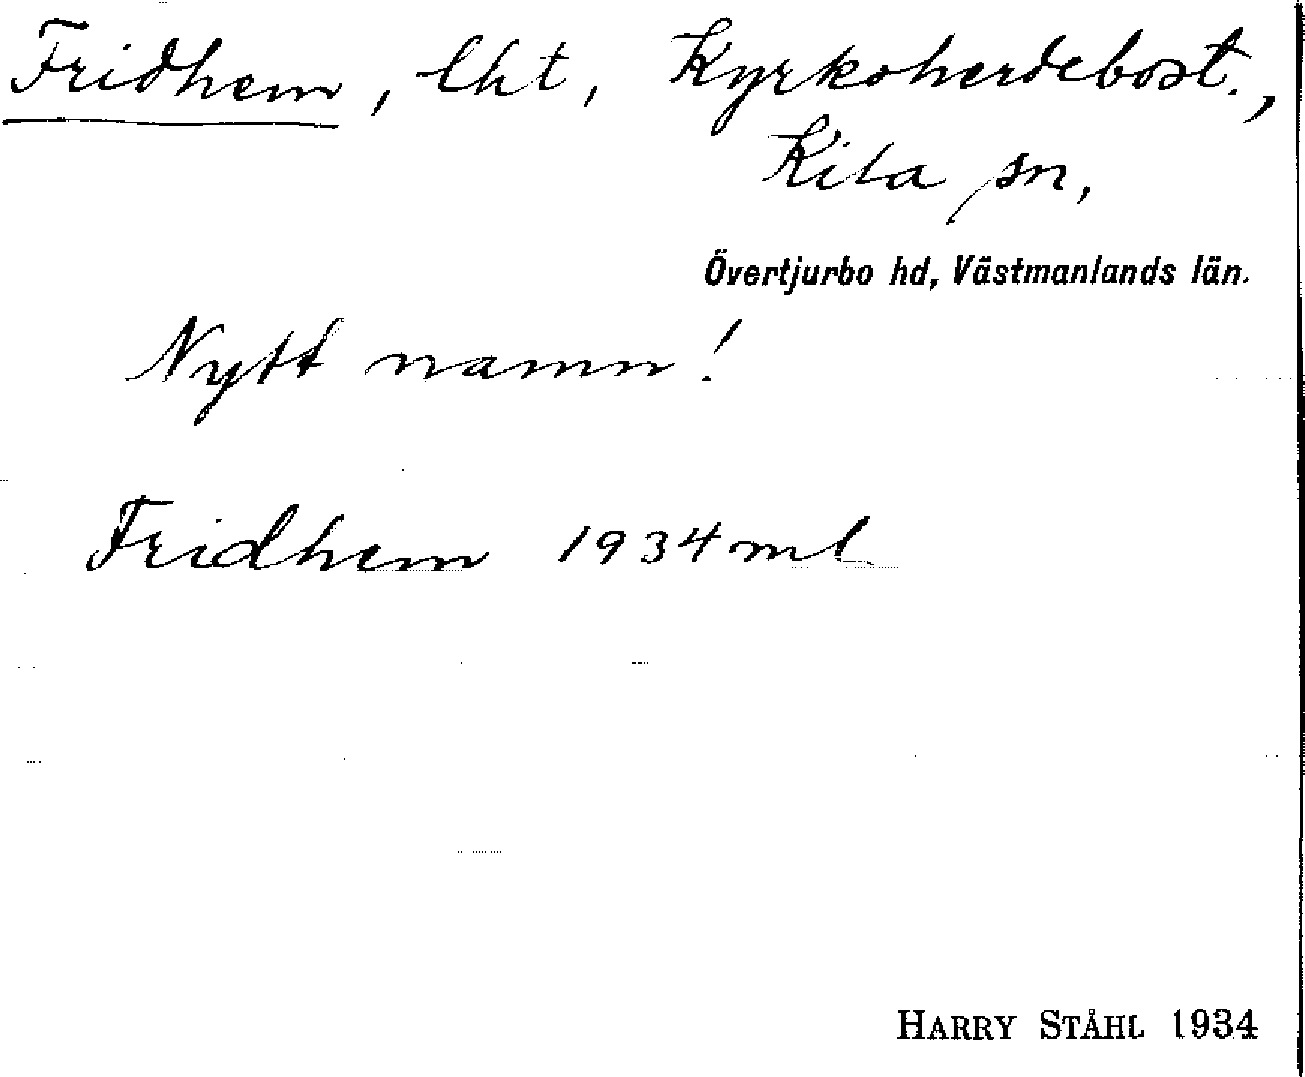 Fridhem, lht, Kyrkoherdebost.,
Kila sn,
Övertjurbo hd, Västmanlands län.
Nytt namn!
Fridhem 1934 ml
HARRY STÅHL 1934